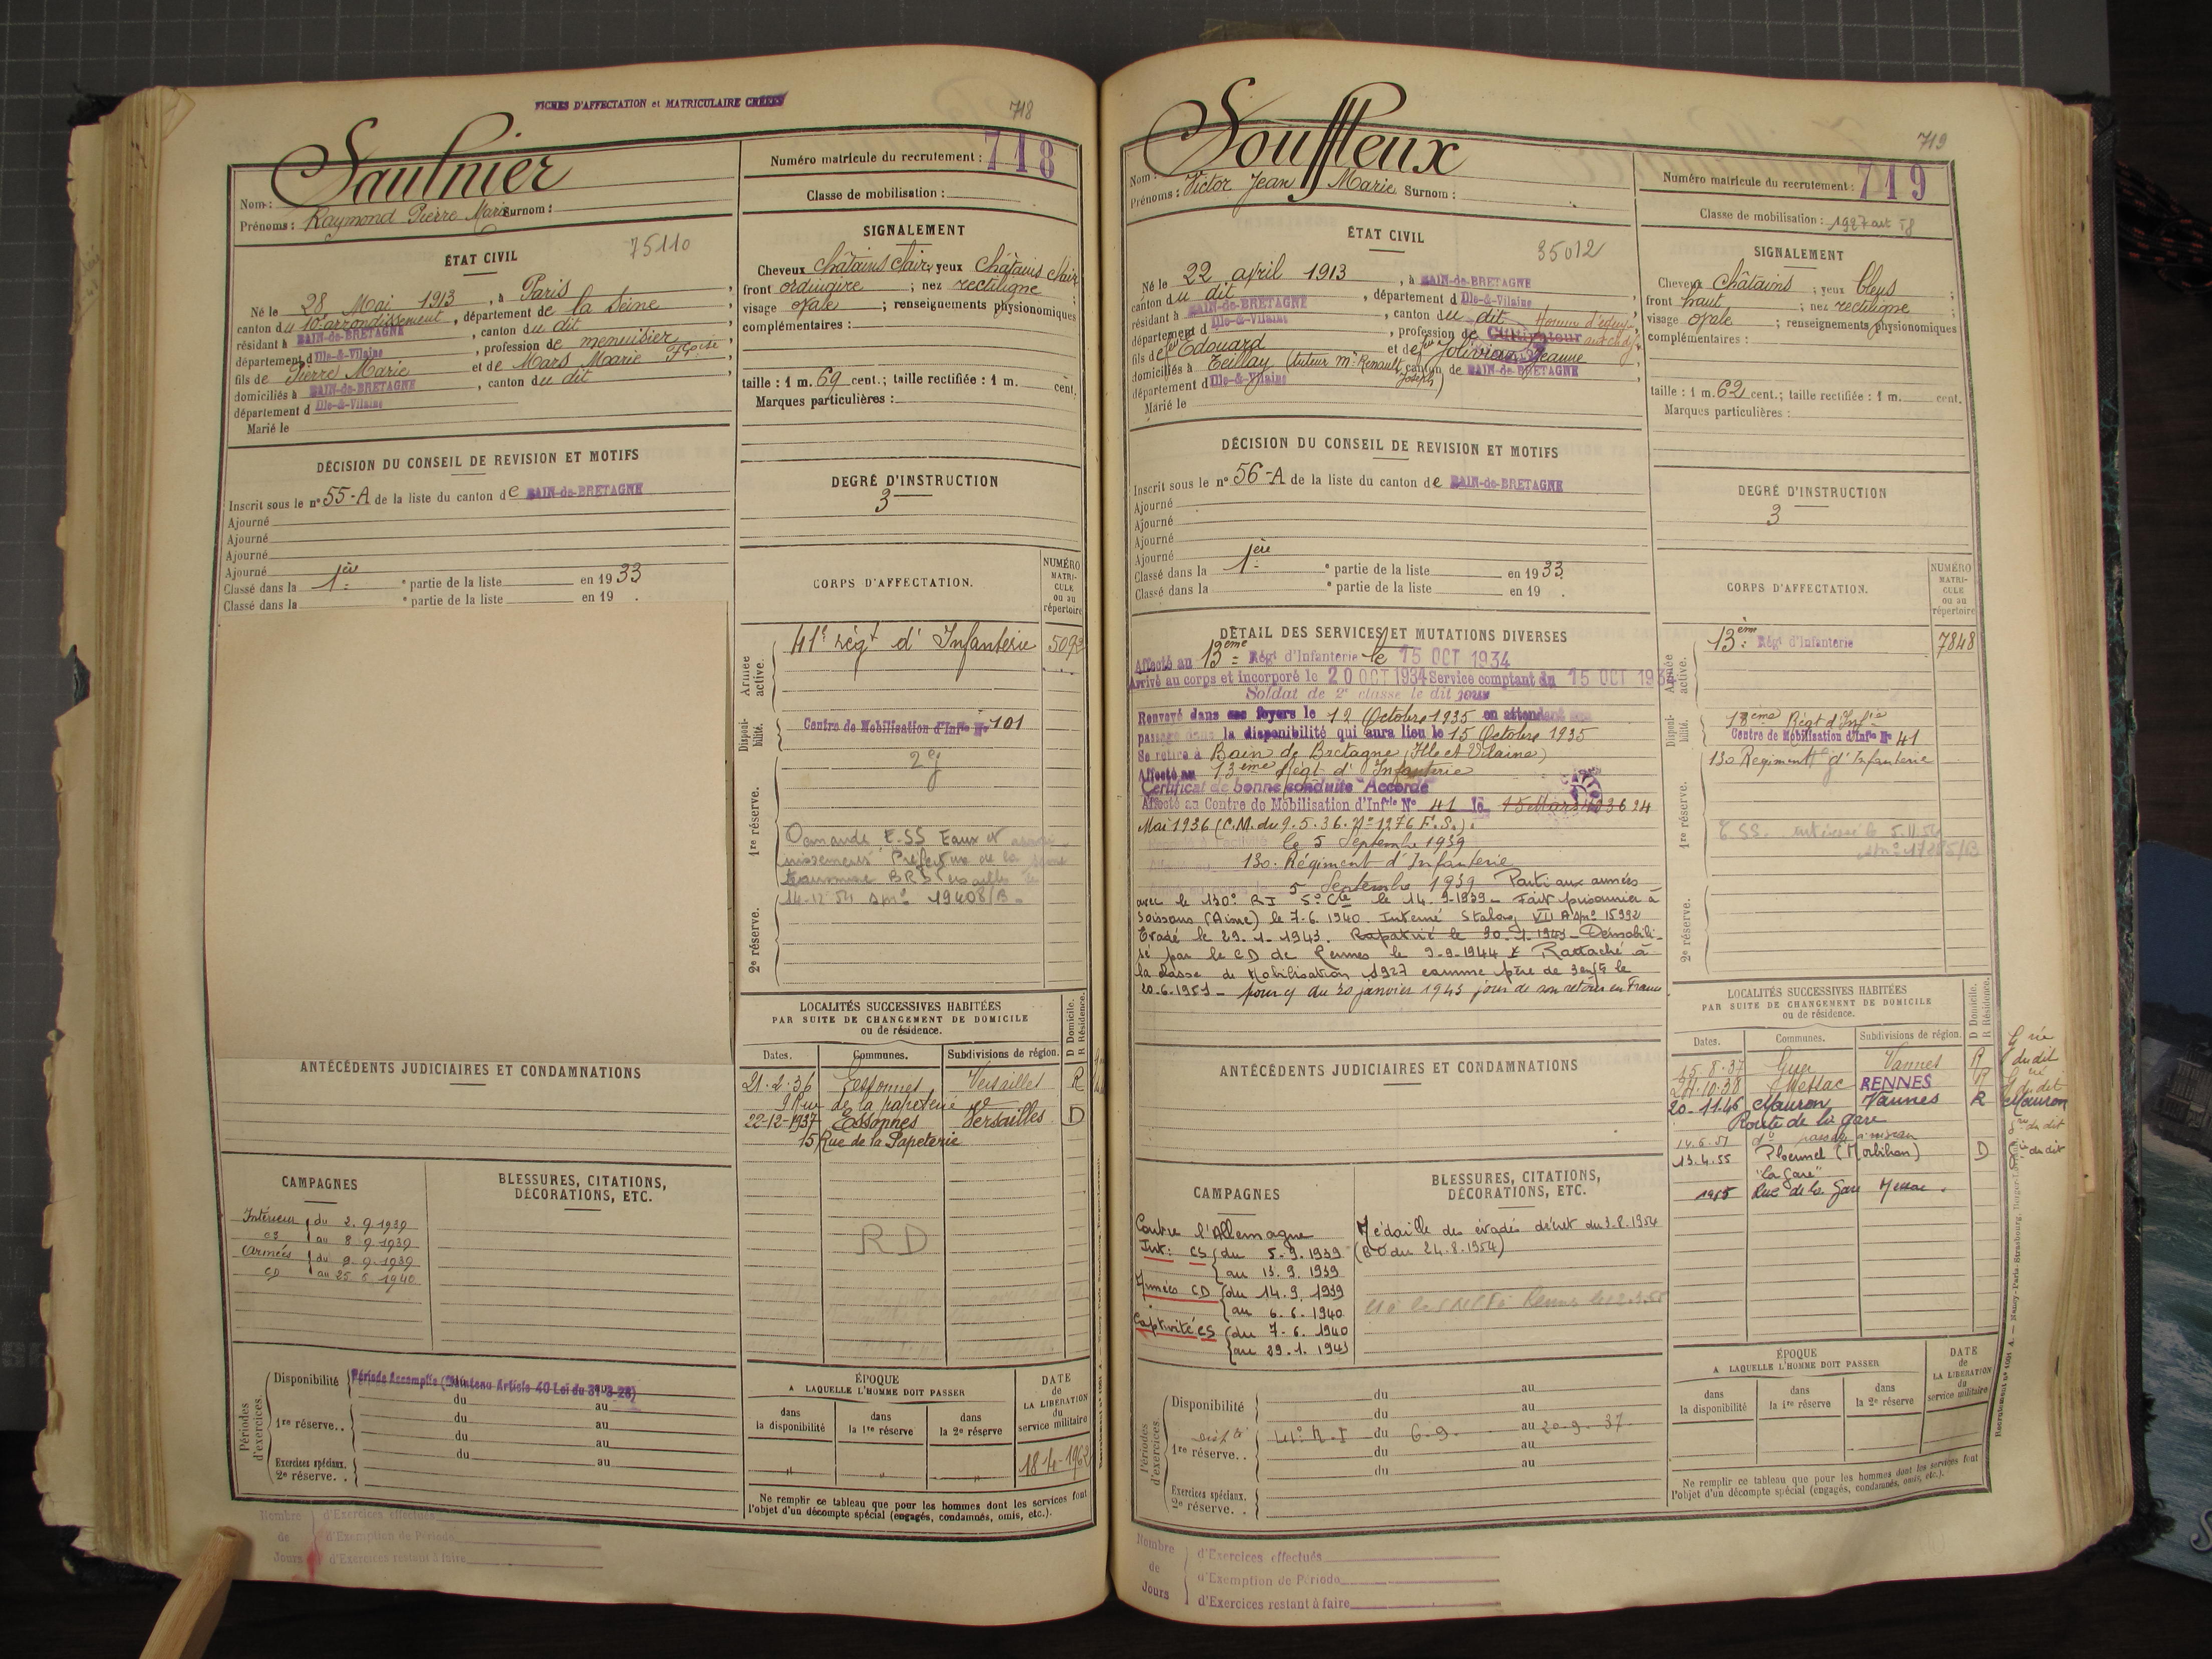 FICHES D'AFFECTATION et MATRICULAIRE CRÉÉES
718
Numéro matricule du recrutement : 718
Nom : Saulnier
Prénoms : Raymond Pierre Marie Surnom :
Classe de mobilisation :
ÉTAT CIVIL
75110
Né le 28 Mai 1913, à Paris,
canton du 10e arrondissement, département de la Seine,
résidant à BAIN-de-BRETAGNE, canton du dit,
département d Ille-&-Vilaine, profession de menuisier,
fils de Pierre Marie et de Mars Marie Fçoise,
domiciliés à BAIN-de-BRETAGNE, canton du dit
département d Ille-&-Vilaine
Marié le
SIGNALEMENT
Cheveux châtains clair, yeux châtains clair
front ordinaire ; nez rectiligne ;
visage ovale ; renseignements physionomiques
complémentaires :
taille : 1 m. 69 cent.; taille rectifiée : 1 m. cent.
Marques particulières :
DÉCISION DU CONSEIL DE REVISION ET MOTIFS
Inscrit sous le n° 55-A de la liste du canton de BAIN-de-BRETAGNE
Ajourné
Ajourné
Ajourné
Ajourné
Classé dans la 1ère e partie de la liste en 1933
Classé dans la e partie de la liste en 19 .
DEGRÉ D'INSTRUCTION
3
CORPS D'AFFECTATION.
NUMÉRO MATRI- CULE ou au répertoire
Armée active.
41e régt d'Infanterie 5093
Disponi- bilité.
Centre de Mobilisation d'Infie N° 101
1re réserve.
Demande E.SS Eaux et
Préfecture de la Seine
14-12-54 19408/B.
2e réserve.
LOCALITÉS SUCCESSIVES HABITÉES
PAR SUITE DE CHANGEMENT DE DOMICILE
ou de résidence.
D Domicile. R Résidence.
Dates. Communes. Subdivisions de région.
21-2-36 Essonnes Versailles R
9 Rue de la papeterie
22-12-1937 Essonnes Versailles D
15 Rue de la Papeterie
RD
ANTÉCÉDENTS JUDICIAIRES ET CONDAMNATIONS
CAMPAGNES
Intérieur du 2.9.1939
CS au 8.9.1939
Armées du 9.9.1939
CD au 25.6.1940
BLESSURES, CITATIONS,
DÉCORATIONS, ETC.
Périodes d'exercices.
Disponibilité Période Accomplie (Maintenu Article 40 Loi du 31-3-28)
du au
1re réserve.. du au
du au
du au
Exercices spéciaux.
2e réserve. .
ÉPOQUE
A LAQUELLE L'HOMME DOIT PASSER
dans la disponibilité
dans la 1re réserve
dans la 2e réserve
DATE de LA LIBÉRATION du service militaire
18-4-1962
Ne remplir ce tableau que pour les hommes dont les services font
l'objet d'un décompte spécial (engagés, condamnés, omis, etc.).
Nombre de Jours
d'Exercices effectués
d'Exemption de Période
d'Exercices restant à faire
719
Numéro matricule du recrutement : 719
Nom : Souffleux
Prénoms : Victor Jean Marie Surnom :
Classe de mobilisation : 1927 art 58
ÉTAT CIVIL
35012
Né le 22 avril 1913, à BAIN-de-BRETAGNE
canton du dit, département d Ille-&-Vilaine,
résidant à BAIN-de-BRETAGNE, canton du dit
département d Ille-&-Vilaine, profession de Cultivateur
Homme d'équipe
fils de feu Edouard et de feue Jolivieau Jeanne
domiciliés à Teillay (tuteur Mr Renault Joseph) canton de BAIN-de-BRETAGNE,
département d Ille-&-Vilaine
Marié le
SIGNALEMENT
Cheveux châtains ; yeux bleus ;
front haut ; nez rectiligne ;
visage ovale ; renseignements physionomiques
complémentaires :
taille : 1 m. 62 cent.; taille rectifiée : 1 m. cent.
Marques particulières :
DÉCISION DU CONSEIL DE REVISION ET MOTIFS
Inscrit sous le n° 56-A de la liste du canton de BAIN-de-BRETAGNE
Ajourné
Ajourné
Ajourné
Ajourné
Classé dans la 1ère e partie de la liste en 1933.
Classé dans la e partie de la liste en 19 .
DEGRÉ D'INSTRUCTION
3
DÉTAIL DES SERVICES ET MUTATIONS DIVERSES
Affecté au 13ème Régt d'Infanterie le 15 OCT 1934
Arrivé au corps et incorporé le 20 OCT 1934 Service comptant du 15 OCT 1934
Soldat de 2e classe le dit jour
Renvoyé dans ses foyers le 12 Octobre 1935 en attendant son
passage dans la disponibilité qui aura lieu le 15 Octobre 1935
Se retire à Bain de Bretagne (Ille et Vilaine)
Affecté au 13ème Régt d'Infanterie
Certificat de bonne conduite "Accordé"
Affecté au Centre de Mobilisation d'Infrie N° 41 le 15 Mars 1936 24
Mai 1936 (C.M. du 9.5.36. N° 1276 F.S.).
le 5 Septembre 1939
130. Régiment d'Infanterie
5 Septembre 1939 Parti aux armées
avec le 130e RI 5e Cie le 14.9.1939 - Fait prisonnier à
Soissons (Aisne) le 7.6.1940. Interné Stalag VII A n° 15992
Evadé le 29.1.1943. Rapatrié le 30.1.1943 - Démobili-
sé par le CD de Rennes le 9-9-1944 Rattaché à
la classe de Mobilisation 1927 comme père de 3 enfts le
20.6.1951 - pour du 30 janvier 1943 jour de son retour en France
CORPS D'AFFECTATION.
NUMÉRO MATRI- CULE ou au répertoire
Armée active.
13ème Régt d'Infanterie 7848
Disponi- bilité.
13ème Régt d'Infie
Centre de Mobilisation d'Infie N° 41
1re réserve.
130 Régiment d'Infanterie
E.SS. 5.11.54
n° 17285/B
2e réserve.
LOCALITÉS SUCCESSIVES HABITÉES
PAR SUITE DE CHANGEMENT DE DOMICILE
ou de résidence.
D Domicile. R Résidence.
Dates. Communes. Subdivisions de région.
15-8-37 Guer Vannes R du dit
24.10.38 Messac RENNES R du dit
20-11.45 Mauron Vannes R Mauron
Route de la gare du dit
14.6.51 d° passage à niveau
13.4.55 Ploermel (Morbihan) D du dit
"La Gare"
1955 Rue de la Gare Messac.
ANTÉCÉDENTS JUDICIAIRES ET CONDAMNATIONS
CAMPAGNES
Contre l'Allemagne
Int: CS du 5.9.1939
au 13.9.1939
Armées CD du 14.9.1939
au 6.6.1940
Captivité CS du 7-6.1940
au 29.1.1943
BLESSURES, CITATIONS,
DÉCORATIONS, ETC.
Médaille des évadés décret du 3.8.1954
(BO du 24.8.1954)
Périodes d'exercices.
Disponibilité du au
du
1re réserve.. 41e R.I du 6.9. au 20-9.37.
du au
du au
Exercices spéciaux.
2e réserve. .
ÉPOQUE
A LAQUELLE L'HOMME DOIT PASSER
dans la disponibilité
dans la 1re réserve
dans la 2e réserve
DATE de LA LIBÉRATION du service militaire
Ne remplir ce tableau que pour les hommes dont les services font
l'objet d'un décompte spécial (engagés, condamnés, omis, etc.).
Nombre de Jours
d'Exercices effectués
d'Exemption de Période
d'Exercices restant à faire